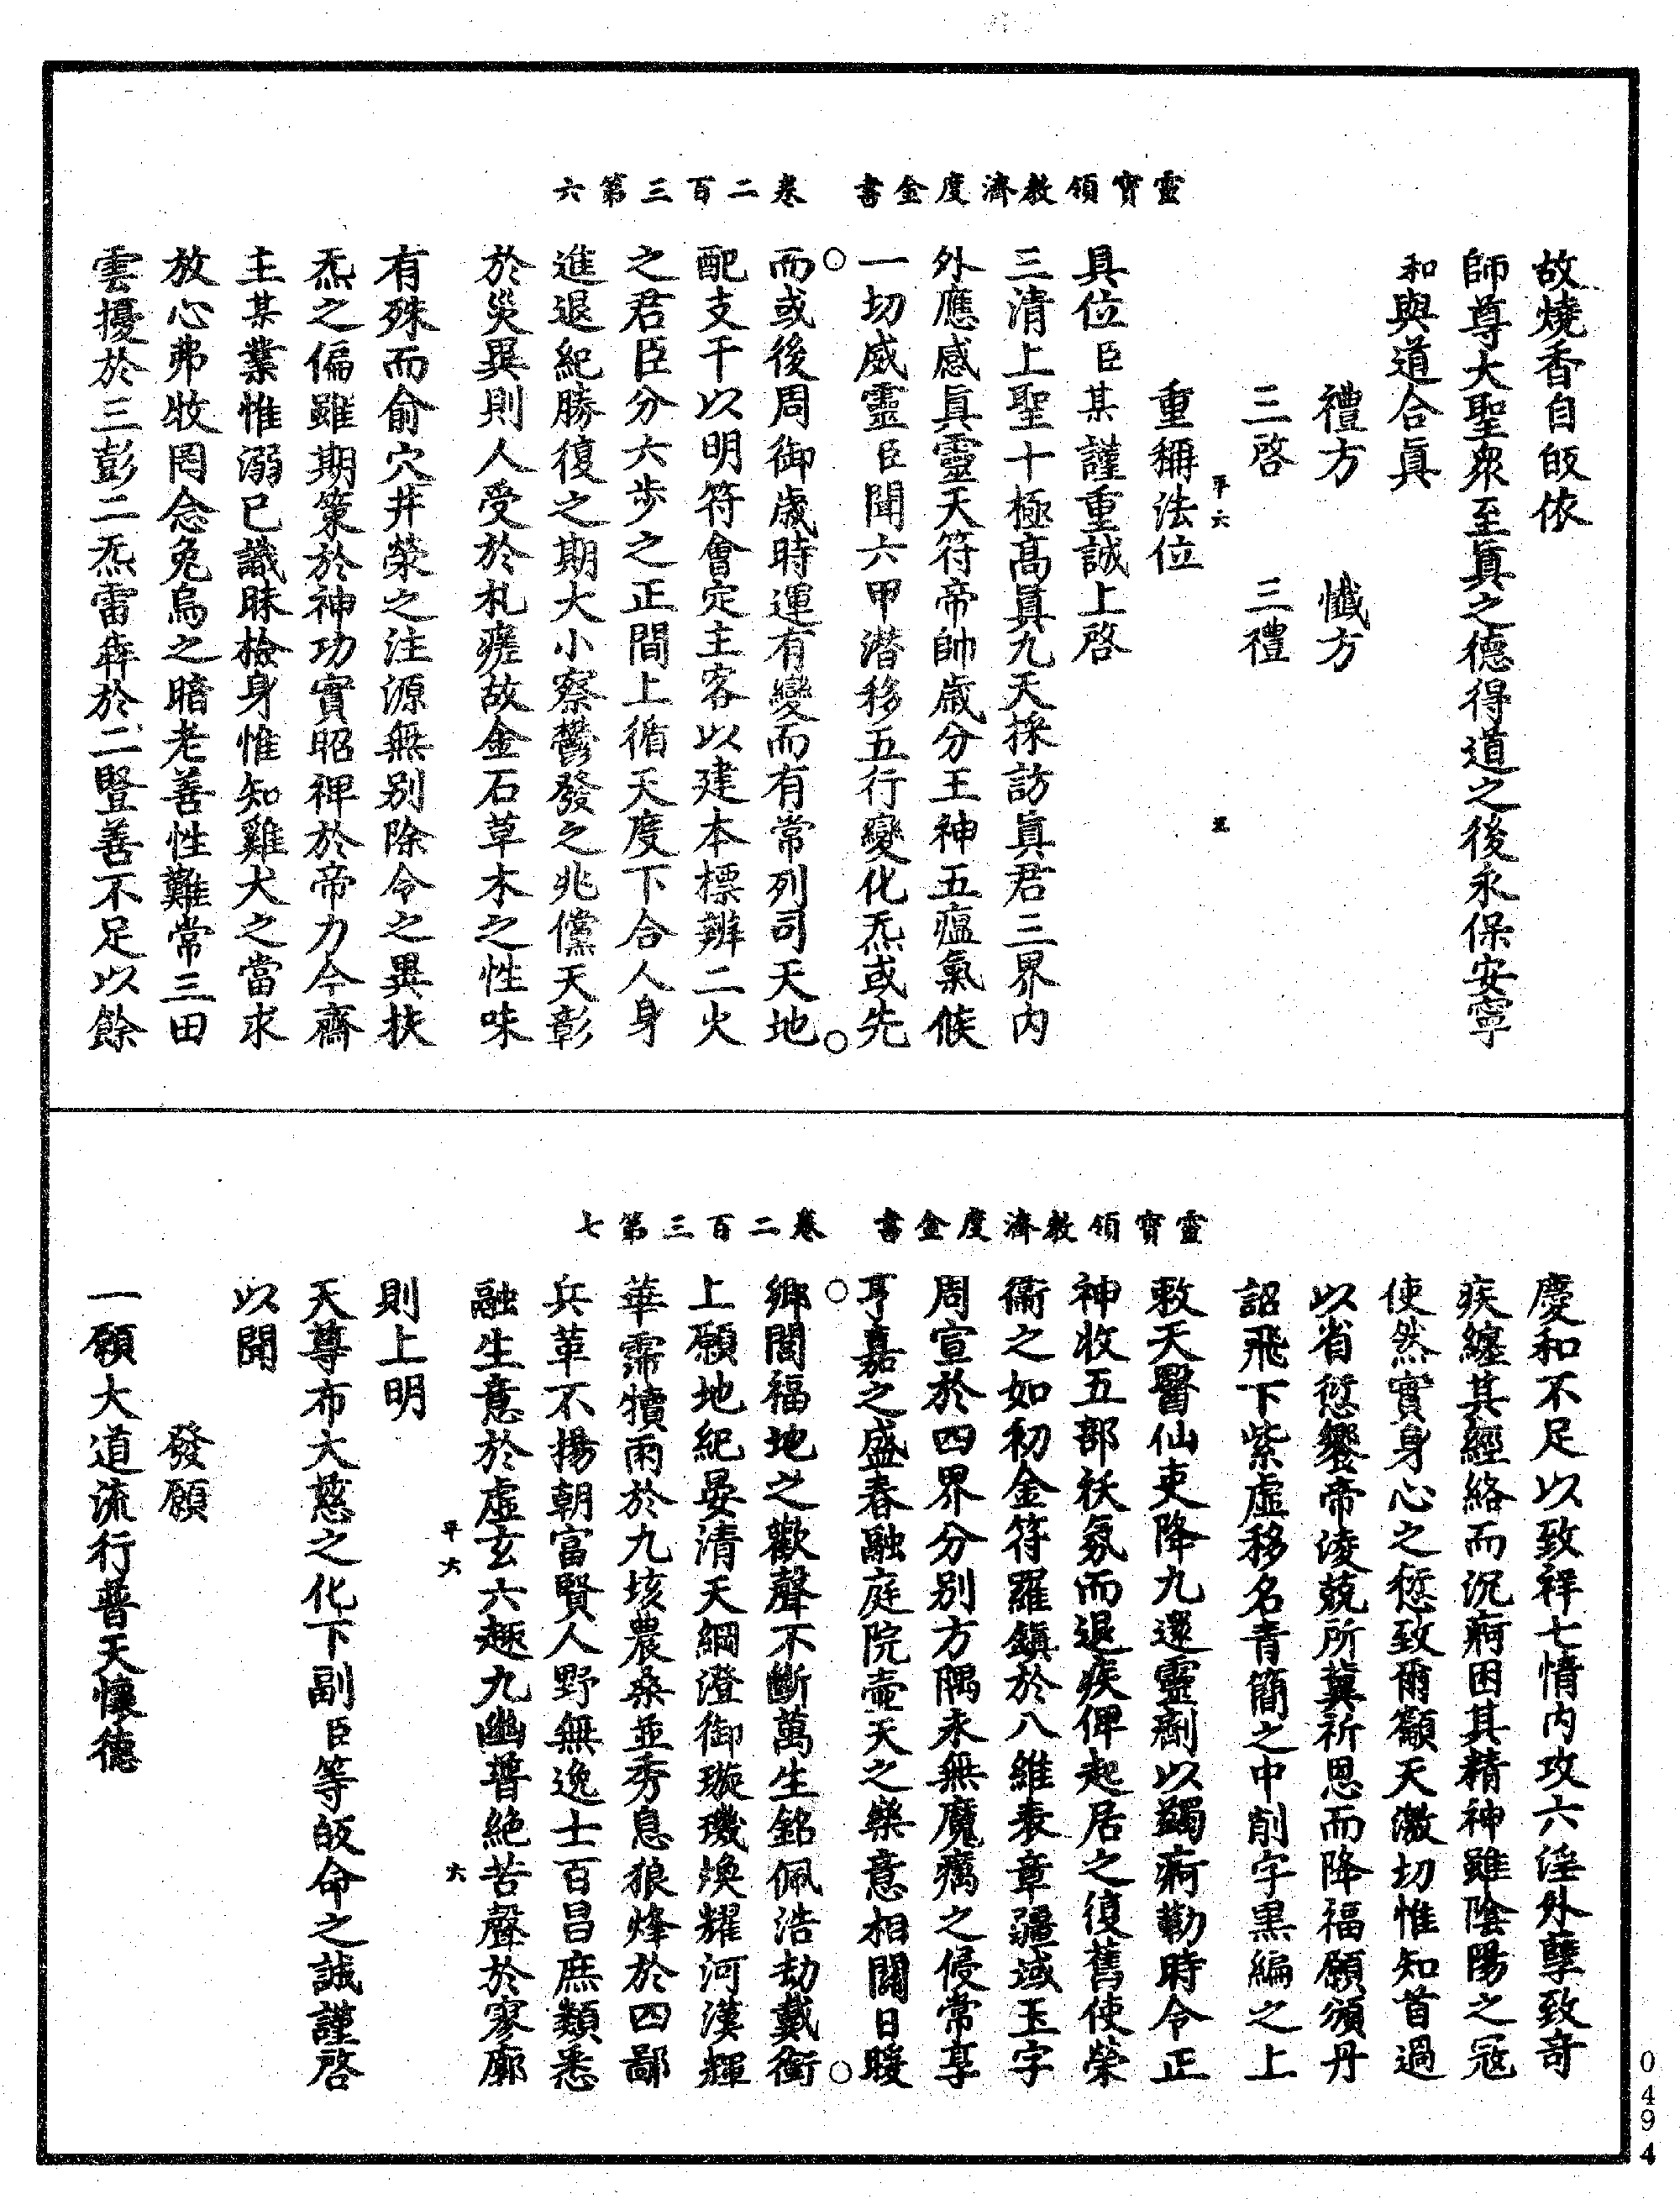 靈寶領教濟度金書　卷二百三第六
故燒香自皈依
師尊大聖衆至眞之德得道之後永保安寧
和與道合眞
禮方　懺方
三啓　三禮
平六　五
重稱法位
具位臣某謹重誠上啓
三清上聖十極高眞九天採訪眞君三界內
外應感眞靈天符帝帥歲分王神五瘟氣候
一切威靈臣聞六甲潛移五行變化炁或先
而或後周御歲時運有變而有常列司天地
配支干以明符會定主客以建本標辨二火
之君臣分六步之正間上循天度下合人身
進退紀勝復之期大小察鬱發之兆儻天彰
於災異則人受於札瘥故金石草木之性味
有殊而俞穴井滎之注源無别除令之異扶
炁之偏雖期策於神功實昭禆於帝力今齋
主某業惟溺已識昧檢身惟知雞犬之當求
放心弗收罔念兔烏之暗老善性難常三田
雲擾於三彭二炁雷犇於二豎善不足以餘
靈寶領教濟度金書　卷二百三第七
慶和不足以致祥七情内攻六淫外孽致奇
疾纏其經絡而沉痾困其精神雖陰陽之寇
使然實身心之愆致爾籲天激切惟知首過
以省愆饗帝淩兢所冀祈恩而降福願頒丹
詔飛下紫虛移名青簡之中削字黑編之上
敕天醫仙吏降九還靈劑以蠲痾勒時令正
神收五部祅氛而退疾俾起居之復舊使榮
衞之如初金符羅鎭於八維表章疆域玉字
周宣於四界分别方隅永無魔癘之侵常享
亨嘉之盛春融庭院壷天之樂意相關日暖
鄉閭福地之歡聲不斷萬生銘佩浩劫戴銜
上願地紀晏清天綱澄御璇璣煥耀河漢輝
華霈犢雨於九垓農桑並秀息狼烽於四鄙
兵革不揚朝富賢人野無逸士百昌庶類悉
融生意於虛玄六趣九幽普絶苦聲於寥廓
平六　六
則上明
天尊布大慈之化下副臣等皈命之誠謹啓
以聞
發願
一願大道流行普天懷德
0494